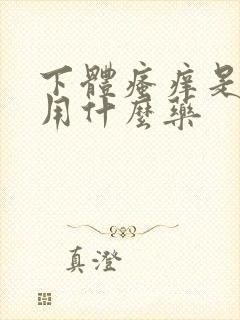 下體瘙癢是
用什麼藥
真澄